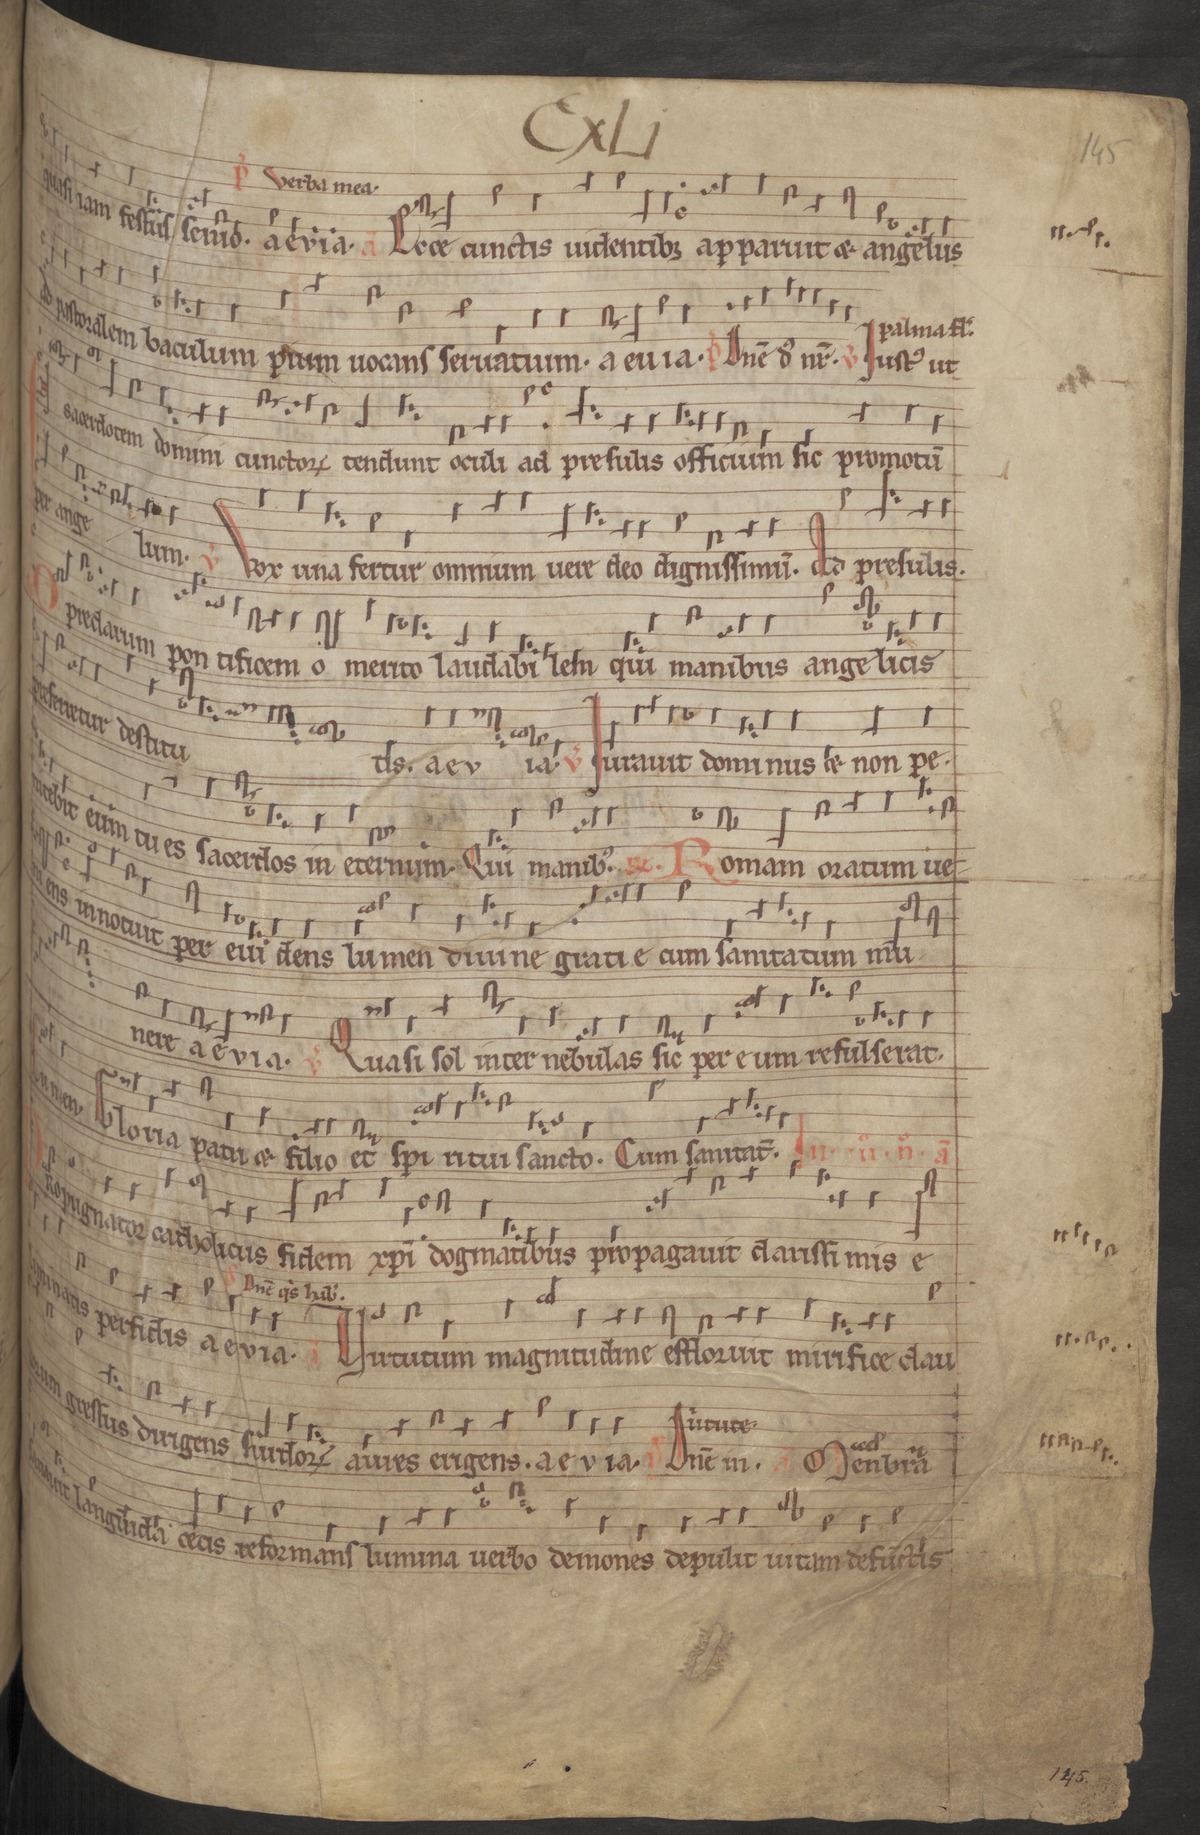 CxLi
145
p̄ verba mea.
quasi iam festus seruo. a e v i a. a Ecce cunctis uidentibꝫ apparuit & angelus
ad pastoralem baculum pium uocans seruatium. a e u i a. p̄ Dnē d̄s nr̄. v̄ Iustꝰ ut
palma fl'.
sacerdotem domini cunctoꝝ tendunt oculi ad presulis officium sic promotū
per ange lum. v̄ Vox una fertur omnium uere deo dignissimū. Ad presulis.
O preclarum pontificem o merito laudabilem qui manibus angelicis
destitu tis. a e v ia. v̄ Iurauit dominus & non pe-
nitebit eum tu es sacerdos in eternum. Qui manibꝰ. Romam oratum ue-
niens innotuit per eui dens lumen diuine gratie cum sanitatum mu
nere a e v i a. v̄ Quasi sol inter nebulas sic per eum refulserat.
Lumen. Gloria patri & filio et spi ritui sancto. Cum sanitat̄. In iiͦ. nͦ. a
Propugnator catholicus fidem xp̄i dogmatibus propagauit clarissimis e
Dnē q̄s hab'.
perfidis a e v i a. a Uirtutum magnitudine effloruit mirifice clau
uirtute
gressus dirigens surdoꝝ aures erigens. a e v i a. Dnē in. a Menbra
languida cecis reformans lumina uerbo demones depulit uitam defunctis
145.